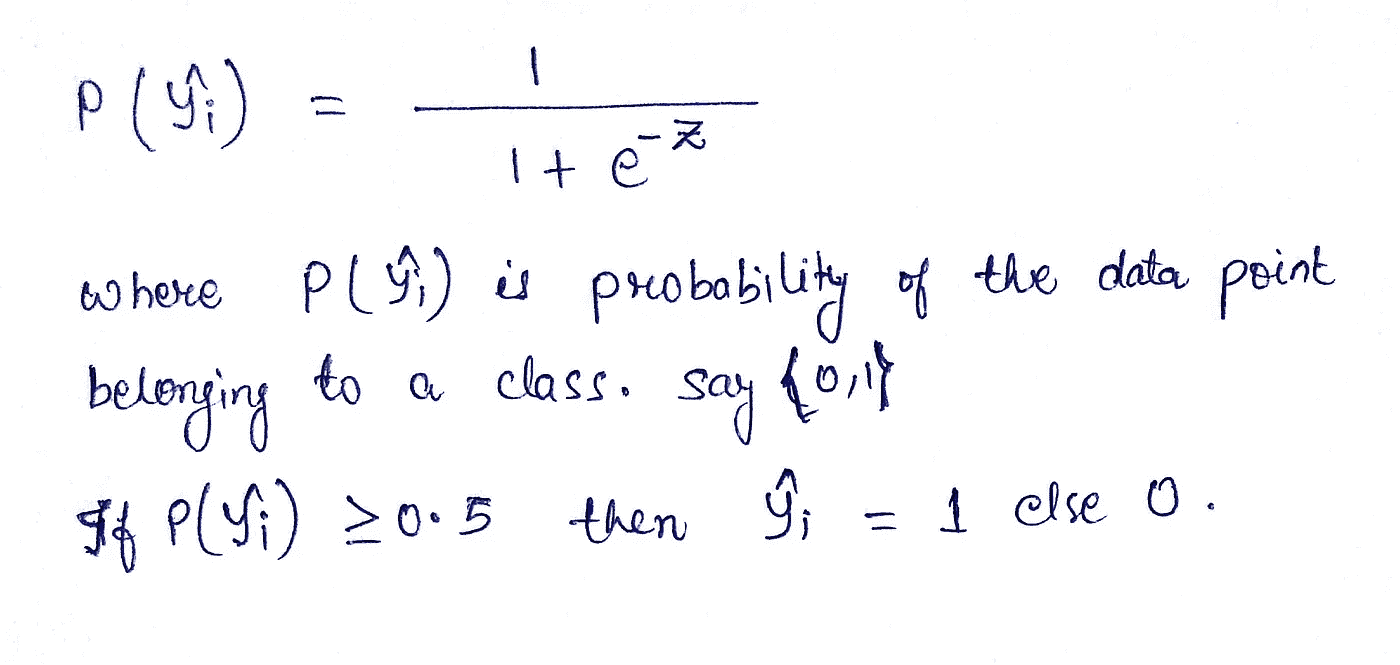 P(ŷi) = 1 / (1 + e^-z)
where P(ŷi) is probability of the data point
belonging to a class. say {0,1}
If P(ŷi) ≥ 0.5 then ŷi = 1 else 0.